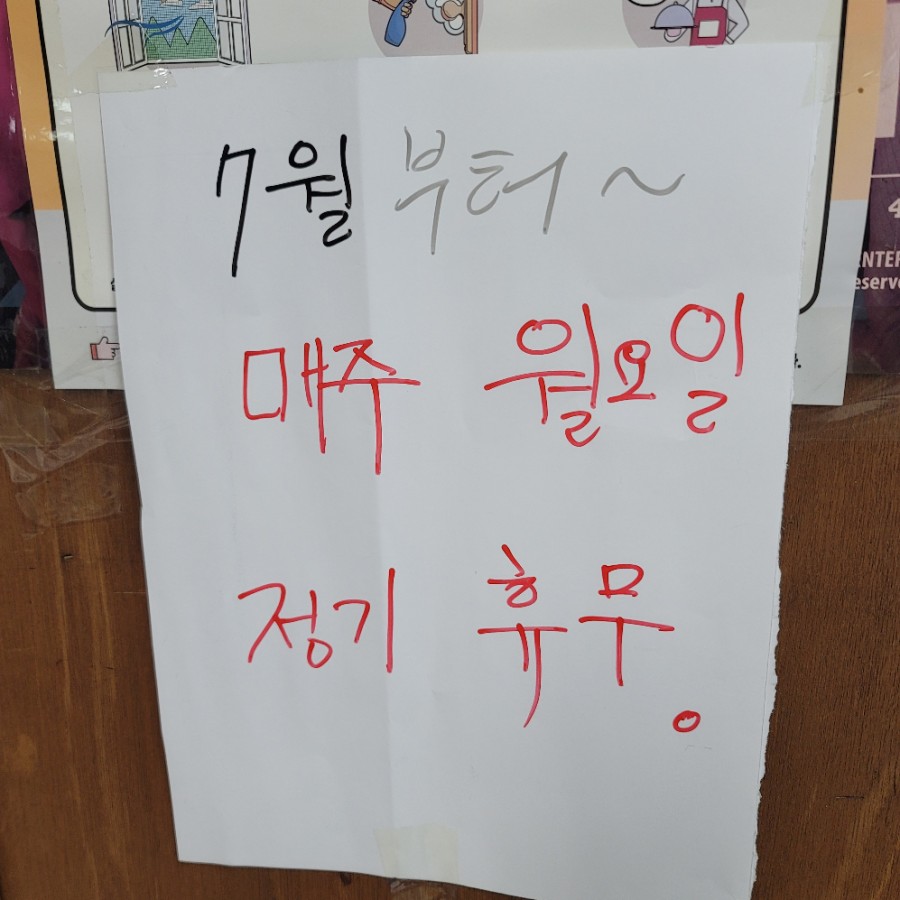 7월 부터 ~
매주 월요일
정기 휴무.
4
ENTER
eserve